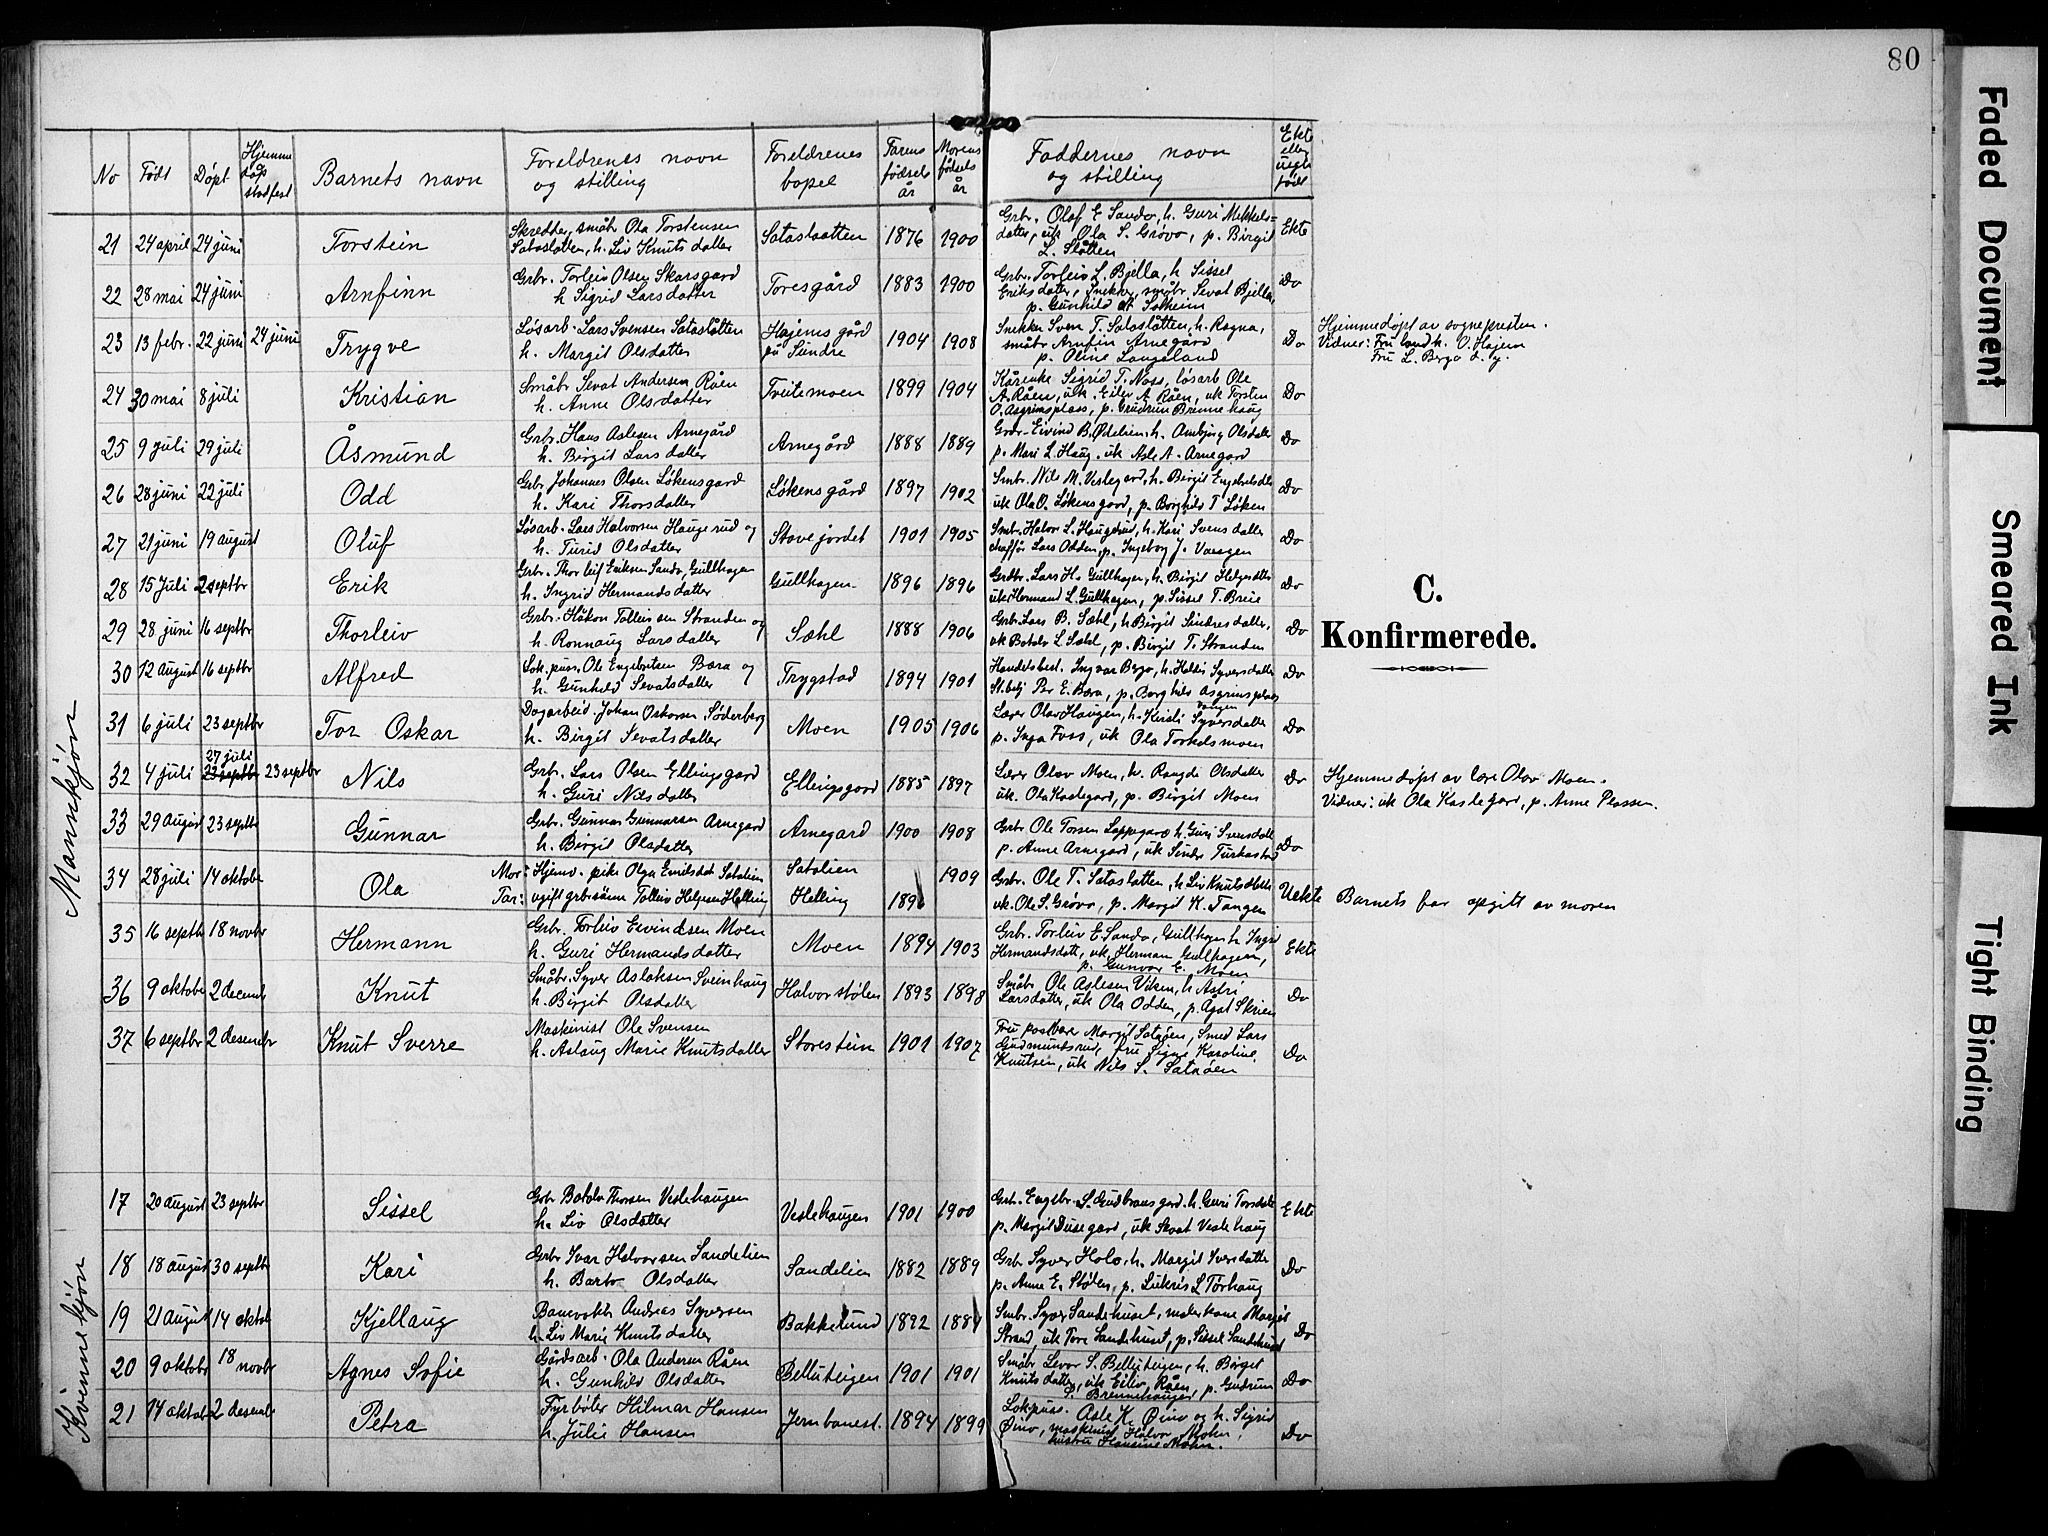 80
No
Født
Døpt
Hjemme
døp
stadfest
Barnets navn
Foreldrenes navn
og stilling
Foreldrenes
bopel
Farens
fødsels
år
Morens
fødsels
år
Faddernes navn
og stilling
Ekte
eller
uegte
født
Mannkjøn
21 24 april 24 juni Torstein
Skredder, småbr Ola Torstensen
Sataslåtten, h. Liv Knutsdatter
Sataslaatten 1876 1900
Grb. Olaf E Sando, h. Guri Mikkels-
datter, uk Ola S. Grøvo, p. Birgit
L. Slåtten
Ekte
22 28 mai 24 juni Arnfinn
Grbr. Torleiv Olsen Skarsgard
h Sigrid Larsdatter
Toresgård 1883 1900
Grbr. Torleiv L. Bjella, h Sissel
Eriksdatter, snekker, småbr Sevat Bjella,
p. Gunhild A Solheim
Do
23 13 febr. 22 juni 24 juni Trygve
Løsarb. Lars Svensen Sataslåtten
h. Margit Olsdatter
Hajems gård
på Sundre
1904 1908
Snekker Sven T. Sataslåtten, h. Ragna,
småbr Arnfin Arnegård
p. Oline Langeland
Do
Hjemmedøpt av sognepresten.
Vidner: Fru landh. O. Hajem
Fru L. Berg d. y.
24 30 mai 8 juli Kristian
Småbr Sevat Andersen Råen
h. Anne Olsdatter
Tveitemoen 1899 1904
Kårenke Sigrid T. Noss, løsarb Ole
A. Råen, uk. Eilev A Råen, uk Torsten
O. Asgrimsplass, p. Gudrun Brennehaug
Do
25 9 juli 29 juli Åsmund
Grbr. Hans Aslesen Arnegård
h. Birgit Larsdatter
Arnegård 1888 1889
Grbr. Eivind B. Ødelien, h. Ambjørg Olsdatter
p. Mari L Haug, uk Asle A. Arnegard
Do
26 28 juni 22 juli Odd
Grbr Johannes Olsen Løkensgard
h. Kari Thorsdatter
Løkensgård 1897 1902
Smbr. Nils M. Veslegard, h. Birgit Engebretsdtr
uk Ola O. Løkensgard, p. Borghild T Løken
Do
27 21 juni 19 august Oluf
Løsarb. Lars Halvorsen Haugerud og
h. Turid Olsdatter
Stavejordet 1901 1905
Smbr. Halvor L. Haugerud, h. Kari Svensdatter
chaffør Lars Odden, p. Ingeborg J.
Do
28 15 Juli 2 septbr Erik
Grbr. Thorleif Eriksen Sando, Gullhagen
h. Ingrid Hermandsdatter
Gullhagen 1896 1896
Grdbr. Lars H. Gullhagen, h. Birgit Helgesdtr
uk Hermand L. Gullhagen, p. Sissel T. Breie
Do
29 28 juni 16 septbr Thorleiv
Grbr. Håkon Tolleivsen Stranden og
h. Ronnaug Larsdatter
Sæhl 1888 1906
Grb. Lars B. Sæhl, h Birgit Sindresdatter,
uk Botolv L Sæhl, p. Birgit T. Stranden
Do
30 12 august 16 septbr Alfred
Lok.puss. Ole Engebretsen Bæra og
h. Gunhild Sevatsdatter
Trygstad 1894 1901
Handelsbest. Ingvar Bergo, h. Halldis Syversdatter
St.betj Per E. Bæra, p. Borghild Asgrimsplass
Do
31 6 juli 23 septbr Tor Oskar
Dagarbeid. Johan Oskarsen Söderberg
h. Birgit Sevatsdatter
Moen 1905 1906
Lærer Olav Haugen, h. Kirsti Syversdatter
p. Inga Foss, uk Ola Torkelsmoen
Do
32 4 juli 27 juli 23 septbr 23 septbr Nils
Grb. Lars Olsen Ellingsgard
h. Guri Nilsdatter
Ellingsgard 1885 1897
Lærer Olav Moen, h. Rangdi Olsdatter
uk. Ola Kastegard, p. Birgit Moen
Do
Hjemmedøpt av lære Olav Moen.
Vidner: uk Ola Kastegard, p. Anne Plassen.
33 29 August 23 septbr Gunnar
Grbr. Gunnar Gunnarsen Arnegard
h. Birgit Olsdatter
Arnegard 1900 1908
Grbr Ole Torsen Loppegard h. Guri Svensdatt
p. Anne Arnegard, uk Sindre
Do
34 28 juli 14 oktobr Ola
Mor: Hjemv. pike Olga Emilsdat Satalien
Far: ugift grbrsønn Tolleiv Helgesen Helling
Satalien
Helling
1896
1909
Grb. Ole T. Sataslatten, h Liv Knutsdtr
uk. Ole S. Grøvo, p. Margit K. Tangen
Uekte
Barnets far opgitt av moren
35 16 septbr 18 novbr Hermann
Grbr. Torleiv Eivindsen Moen
h. Guri Hermandsdatter
Moen 1894 1903
Grb. Torleiv E. Sando, Gullhagen h Ingrid
Hermandsdatt, uk. Herman Gullhagen,
p. Gunvor E. Moen
Ekte
36 9 oktobr 2 decemb Knut
Småbr. Syver Aslaksen Sveinhaug
h. Birgit Olsdatter
Halvorstølen 1893 1898
Småbr Ole Aslesen Viken, h Astri
Larsdatter, uk Ola Odden, p. Agat Skrien
Do
37 6 septbr 2 desembr Knut Sverre
Maskinist Ole Svensen
h. Aslaug Marie Knutsdatter
Storestein 1901 1907
Fru postbær Margit Sataøen, Smed Lars
Gudmundsrud, fru Signe Karoline
Knutsen, uk Nils S. Sataøen
Do
C.
Konfirmerede.
Kvinnekjøn
17 20 August 23 septbr Sissel
Grbr Botolv Thorsen Veslehaugen
h. Liv Olsdatter
Veslehaugen 1901 1900
Grb. Engebr. S. Gudbransgard. h. Guri Torsdatt
p. Margit Dusegard, uk Sevat Veslehaug
Ekte
18 18 August 30 septbr Kari
Grbr Ivar Halvorsen Sandelien
h. Barbro Olsdatter
Sandelien 1882 1889
Grbr Syver Holo, h. Margit Iversdatter
p. Anne E. Stølen, p. Lukris L Torhaug
Do
19 21 August 14 oktob Kjellaug
Banevakt Andreas Syversen
h. Liv Marie Knutsdatter
Bakkelund 1892 1884
Smbr. Syver Sandehuset, malerkone Margit
Strand, uk Tore Sandehuset, p. Sissel Sandehuset
Do
20 9 oktobr 18 novbr Agnes Sofie
Gårdsarb. Ola Andersen Råen
h. Gunhild Olsdatter
Belluteigen 1901 1901
Småbr Levor S. Belluteigen, h. Birgit
Knutsdatter, uk Eiliv Råen, p. Gudrun
S. Brennehaugen
Do
21 14 oktobr 2 desemb Petra
Fyrbøter Hilmar Hansen
h. Julie Hansen
Jernbanest. 1894 1899
Lokpuss. Asle K. Øino og h. Sigrid
Øino, maskinist Halvor Mohn,
hustru Hansine Mohn.
Do
Faded Document
Smeared Ink
Tight Binding